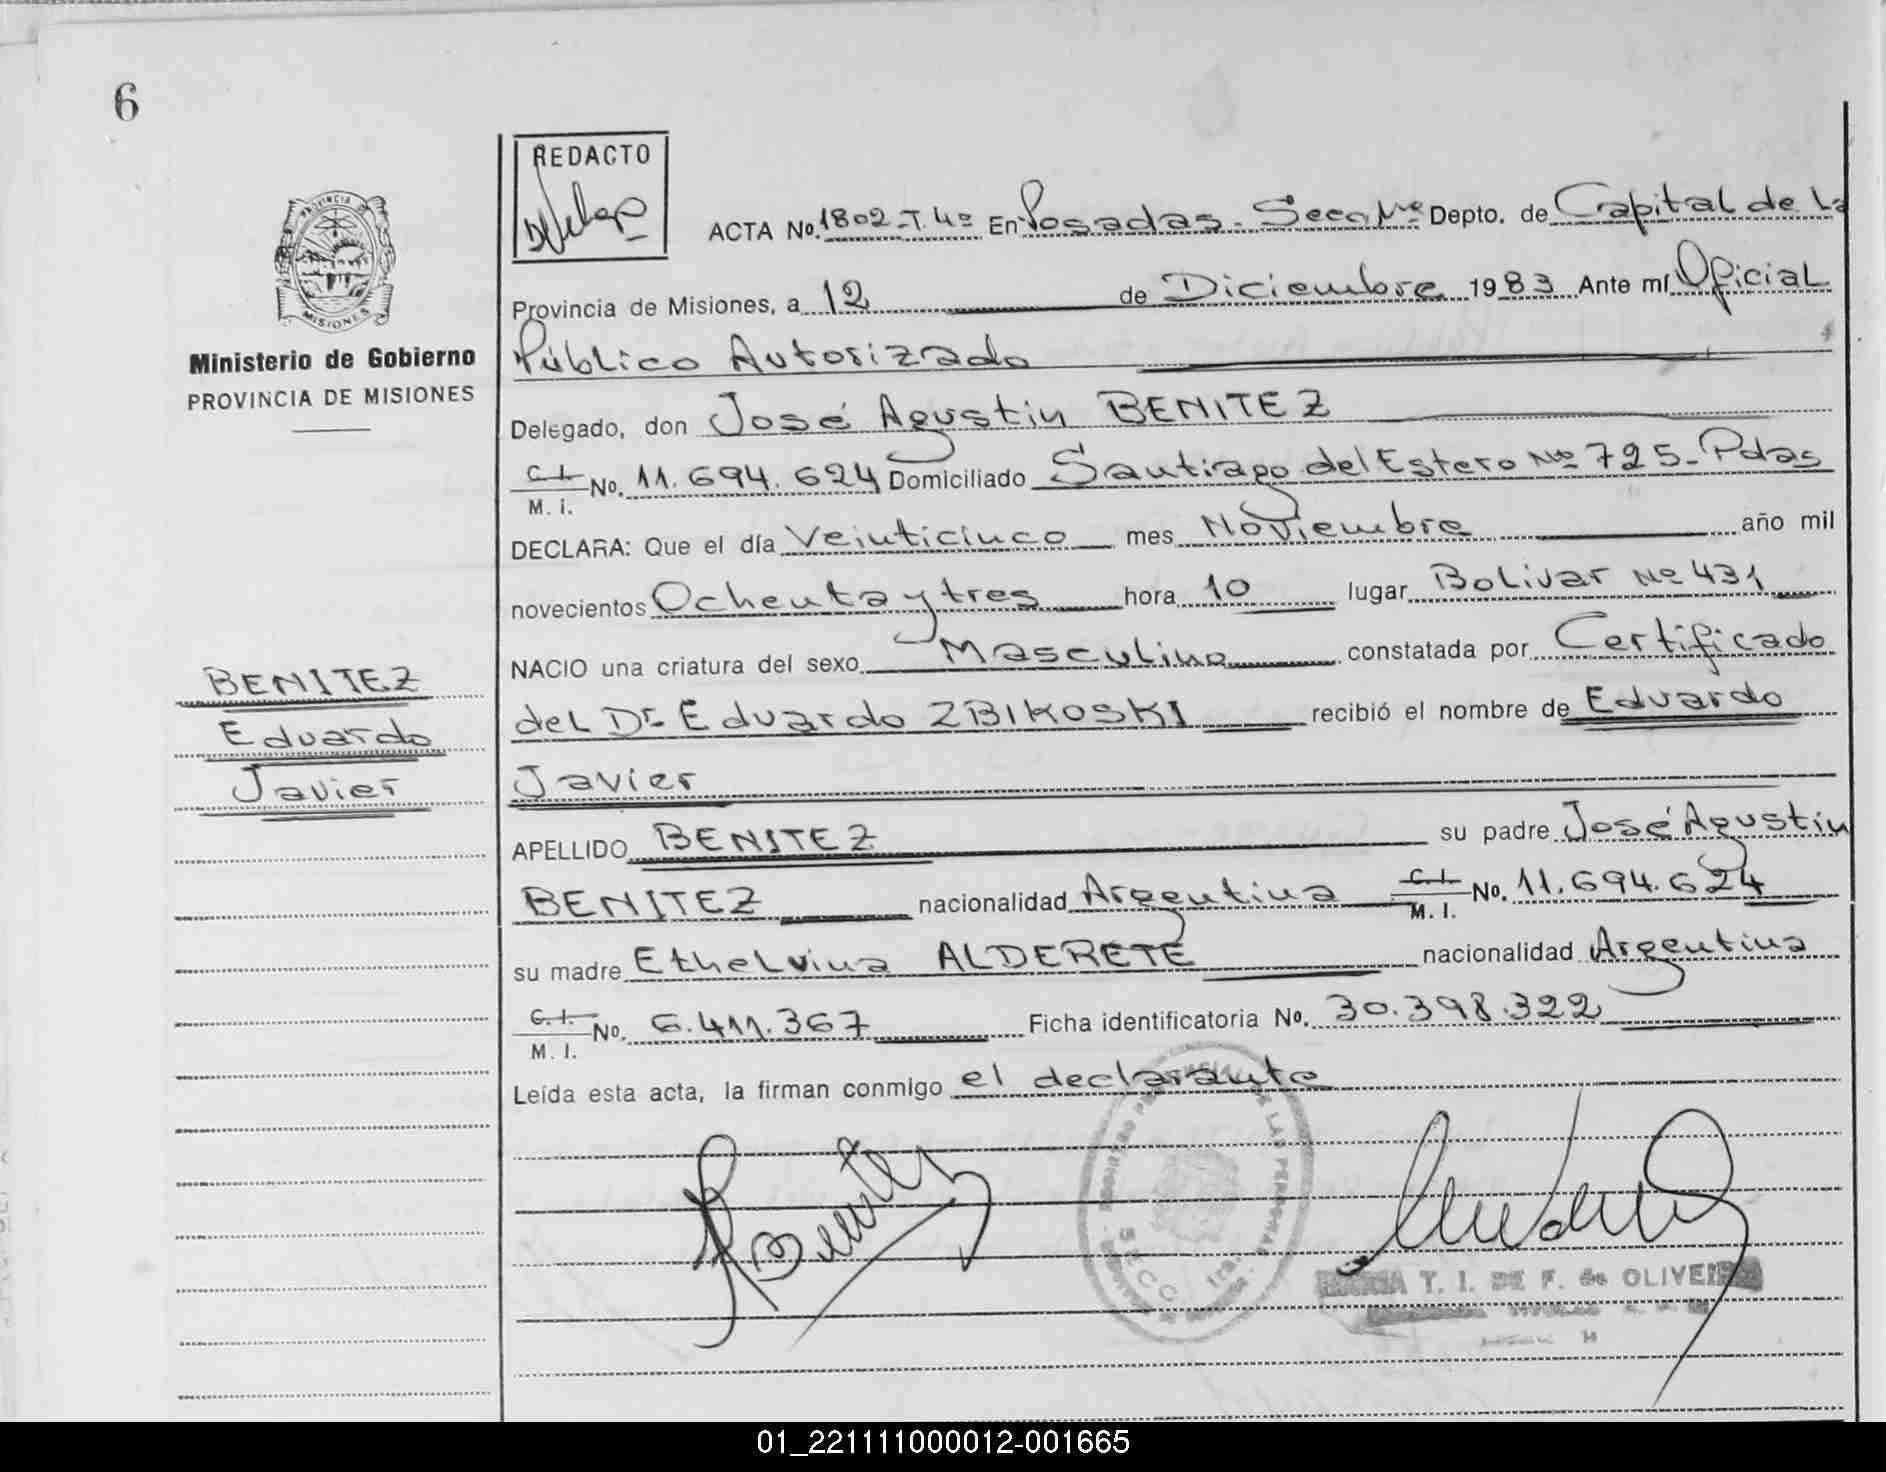 6
REDACTO
ACTA No. 1802-T.4º En Posadas - Secc. Depto. de Capital de La
Provincia de Misiones, a 12 de Diciembre 1983 Ante mí Oficial
Público Autorizado
PROVINCIA
MISIONES
Ministerio de Gobierno
PROVINCIA DE MISIONES
Delegado, don José Agustin BENITEZ
C.I. M. I. No. 11.694.624 Domiciliado Santiago del Estero Nº 725 - Pdas
DECLARA: Que el día Veinticinco mes Noviembre año mil
novecientos Ochenta y tres hora 10 lugar Bolivar Nº 431
NACIO una criatura del sexo Masculino constatada por Certificado
del Dr Eduardo ZBIKOSKI recibió el nombre de Eduardo
Javier
BENITEZ
Eduardo
Javier
APELLIDO BENITEZ su padre José Agustin
BENITEZ nacionalidad Argentina C.I. M. I. No. 11.694.624
su madre Ethelvina ALDERETE nacionalidad Argentina
C.I. M. I. No. 6.411.367 Ficha identificatoria No. 30.398.322
Leída esta acta, la firman conmigo el declarante
Benitez
DE LAS PERSONAS
SECC
T. I. DE F. de OLIVEIRA
01_221111000012-001665